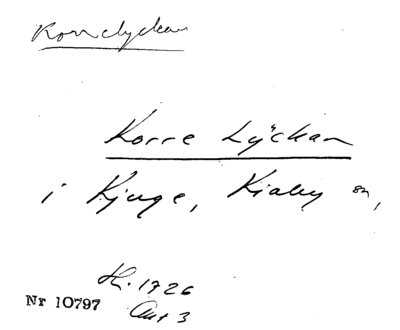 Korrelyckan
Korre Lyckan
i Kjuge, Kiaby sn,
H. 1726
Akt 3
Nr 10797